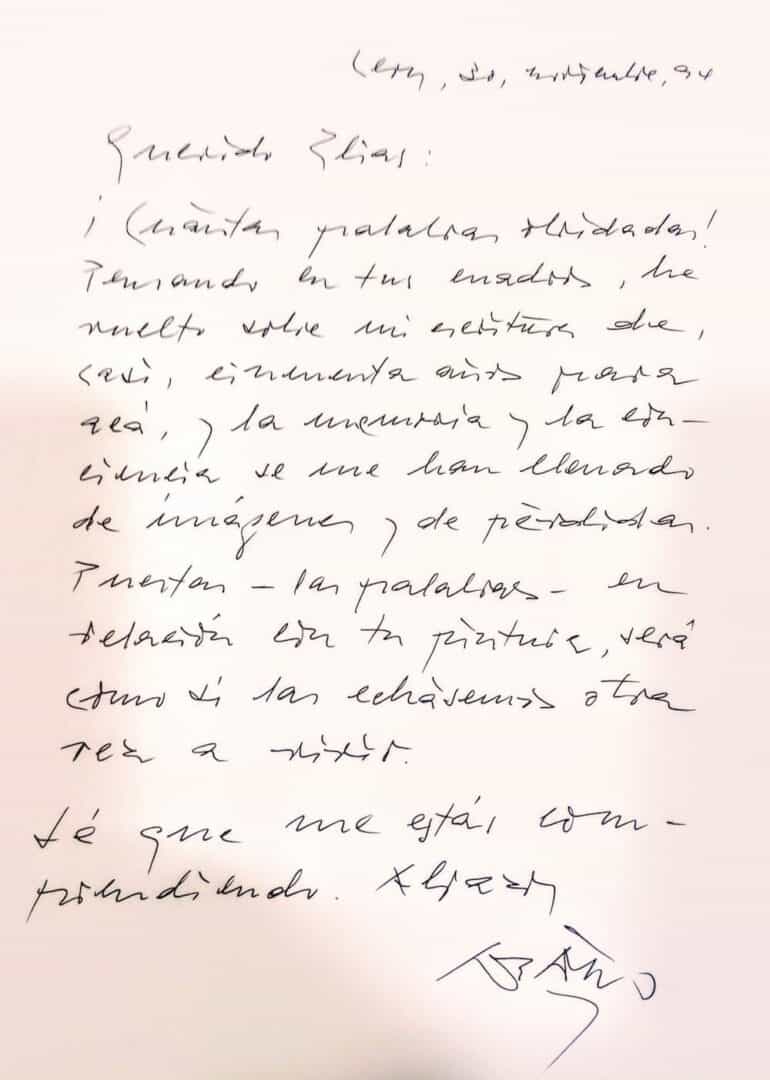 León, 30, noviembre, 94
Querido Elías:
¡Cuántas palabras olvidadas!
Pensando en tus cuadros, he
vuelto sobre mi escritura de,
casi, cincuenta años para
acá, y la memoria y la con-
ciencia se me han llenado
de imágenes y de pérdidas.
Puestas - las palabras - en
relación con tu pintura, será
como si las echásemos otra
vez a vivir.
Sé que me estás com-
prendiendo. Abrazos